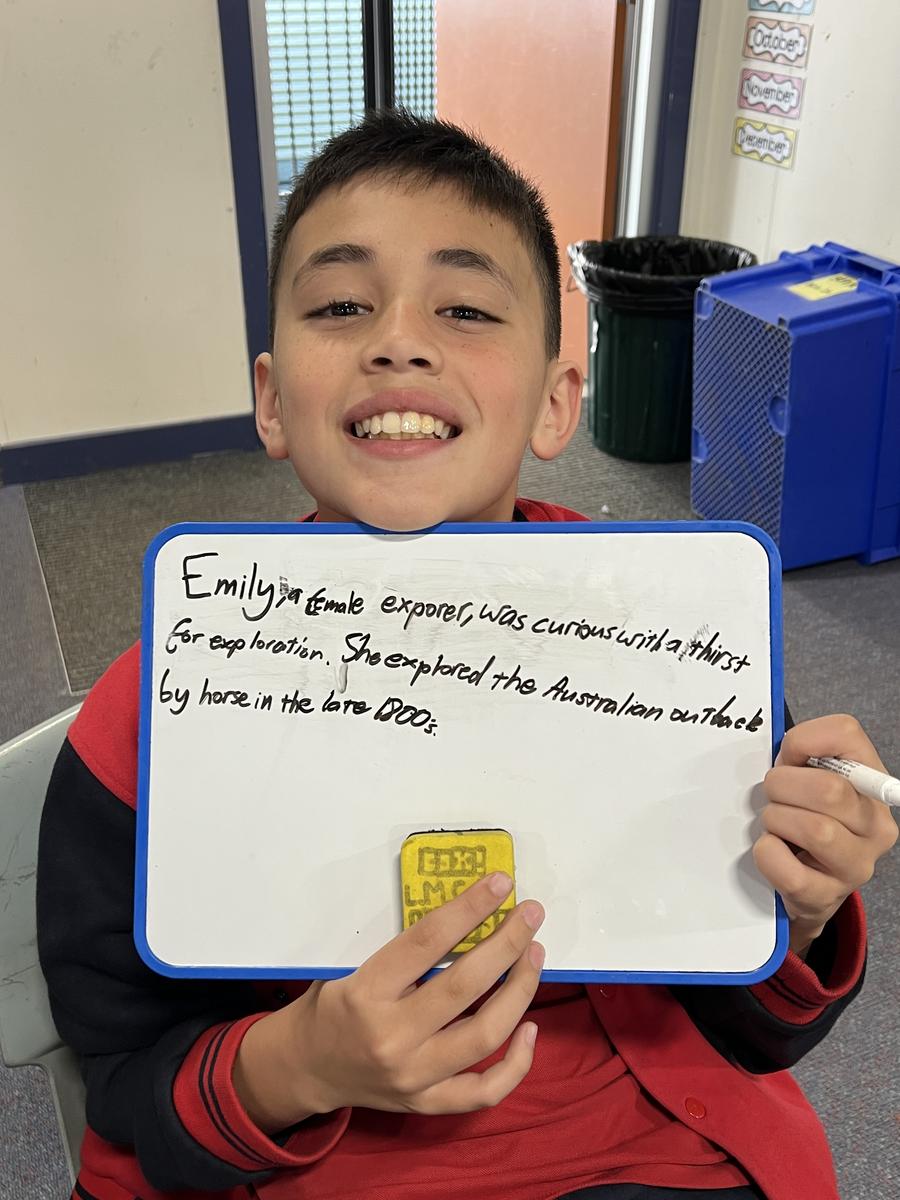 October
November
December
Emily, a female exporer, was curious with a thirst
for exploration. She explored the Australian outback
by horse in the late 1800s.